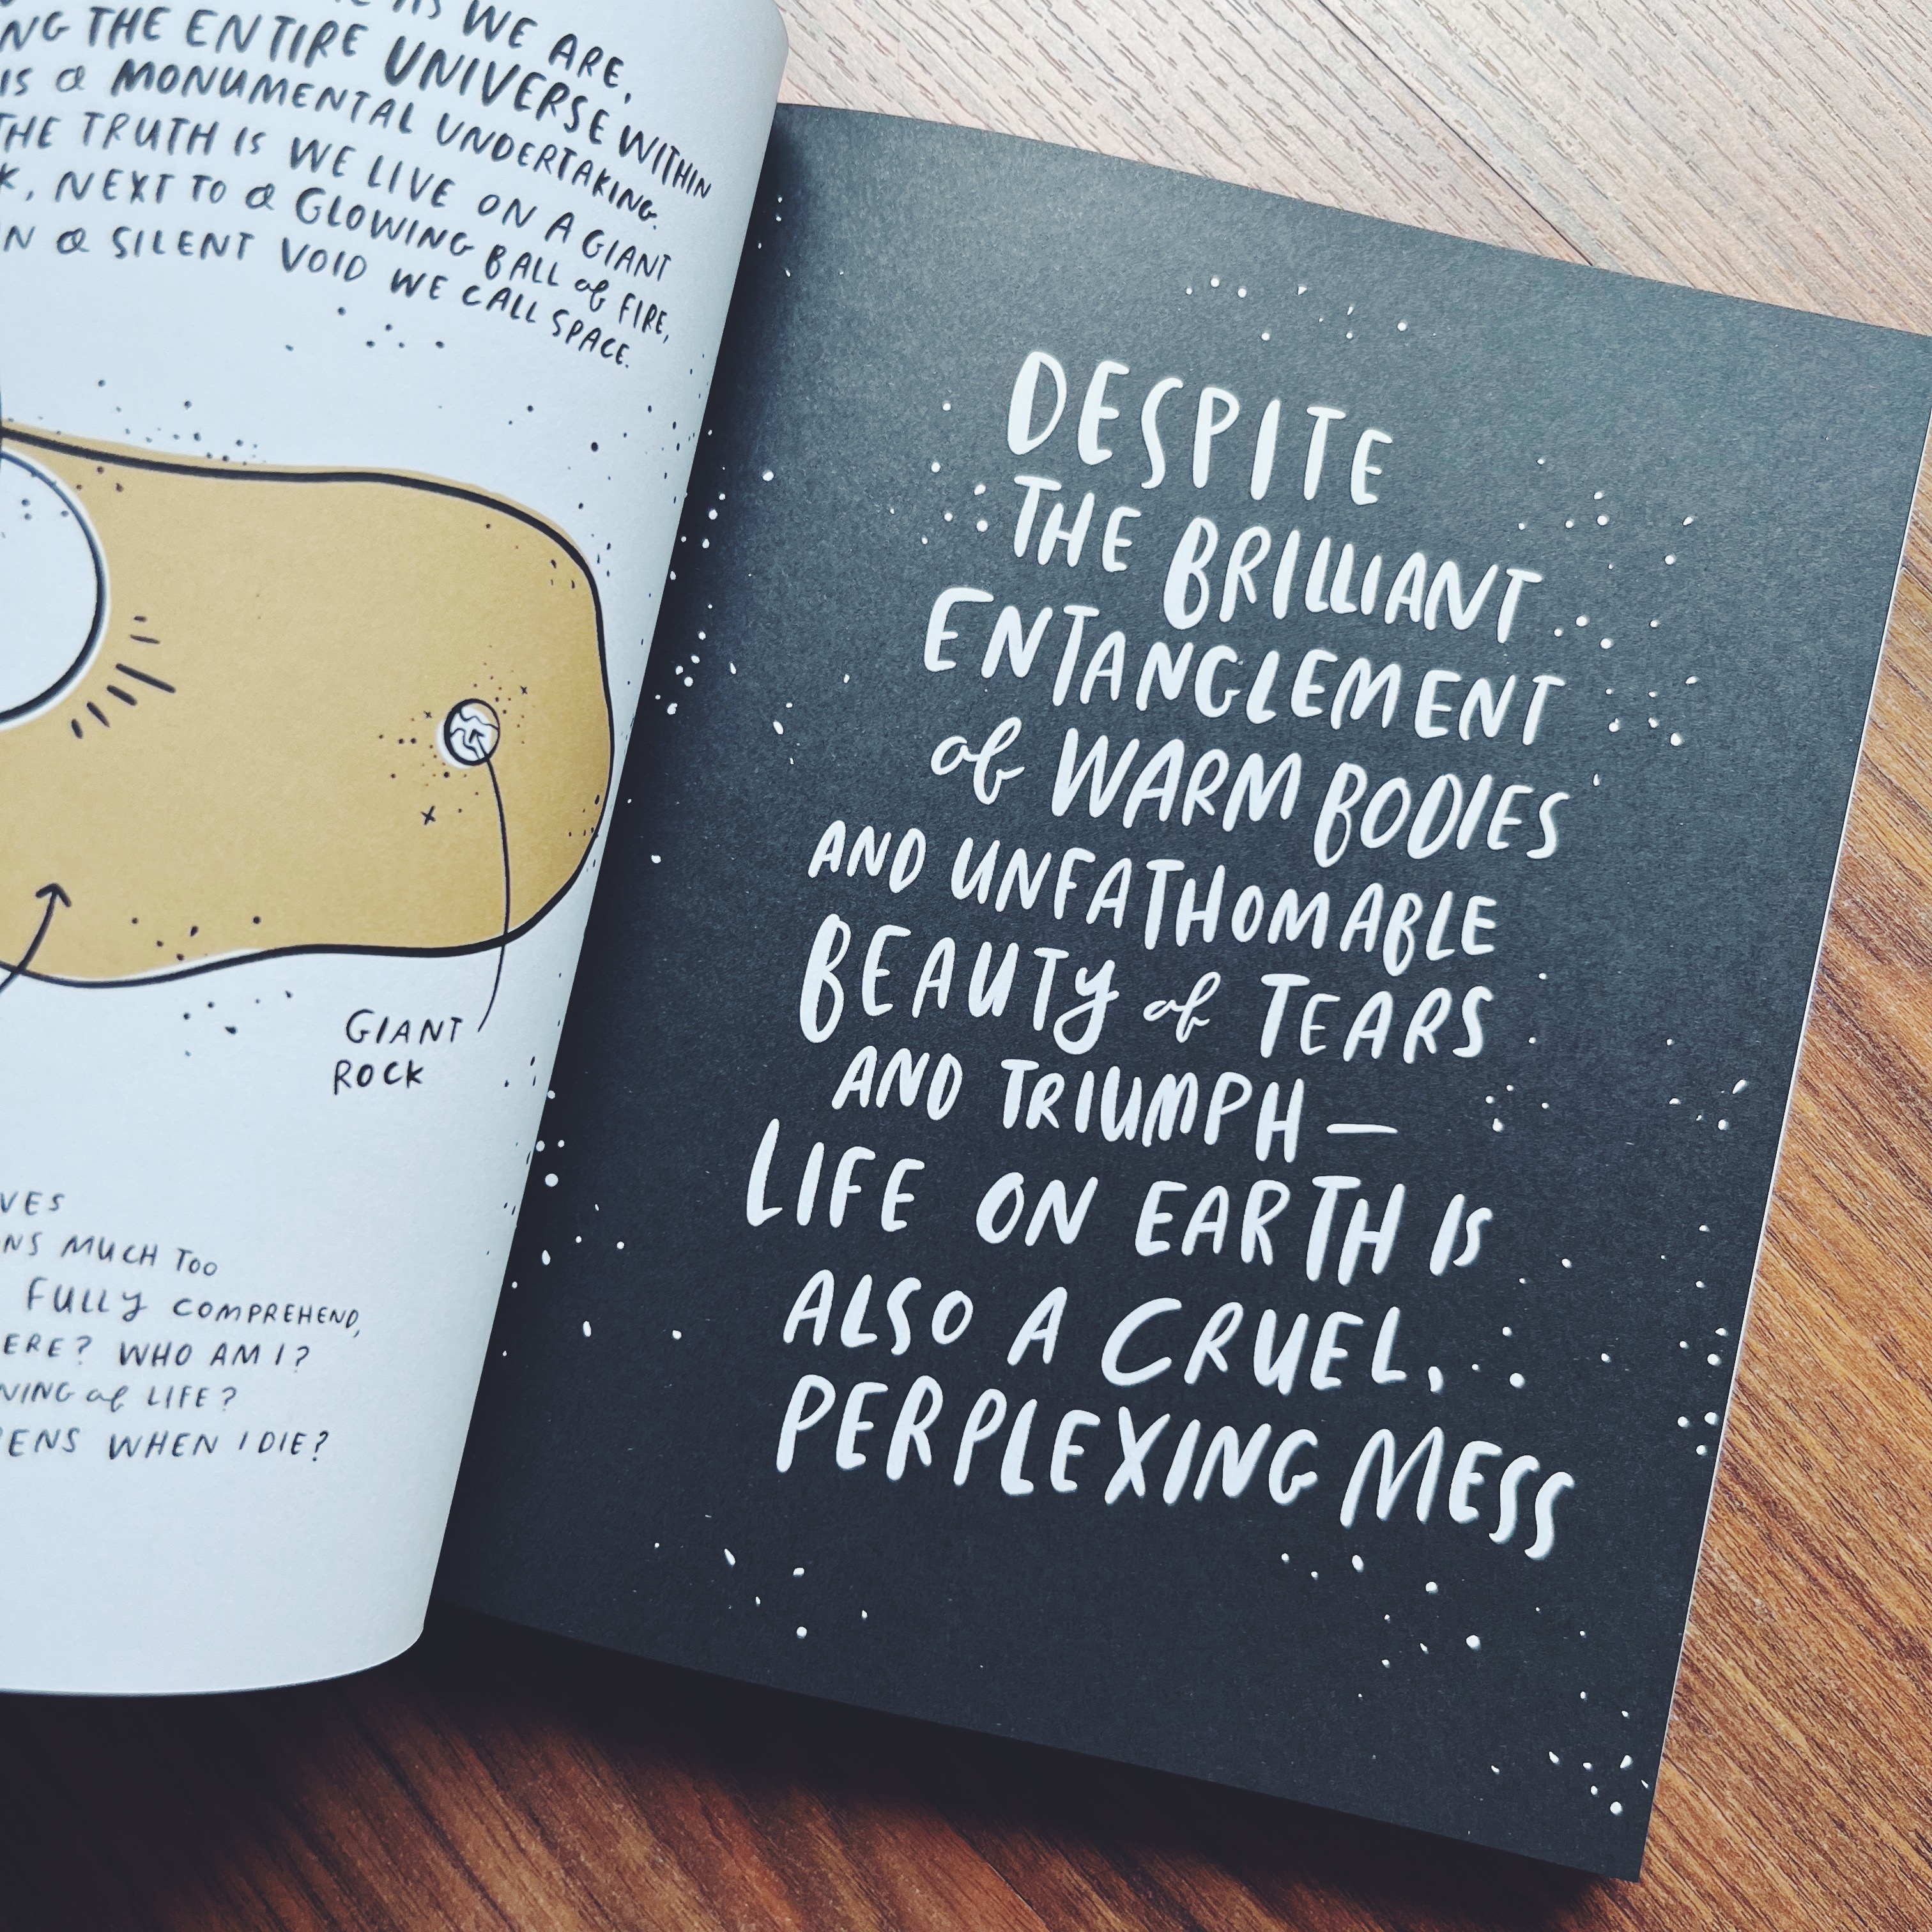 AS WE ARE,
THE ENTIRE UNIVERSE WITHIN
IS a MONUMENTAL UNDERTAKING.
THE TRUTH IS WE LIVE ON A GIANT
NEXT TO a GLOWING BALL of FIRE,
a SILENT VOID WE CALL SPACE.
GIANT
ROCK
MUCH TOO
FULLY COMPREHEND,
WHO AM I?
of LIFE?
WHEN I DIE?
DESPITE
THE BRILLIANT
ENTANGLEMENT
of WARM BODIES
AND UNFATHOMABLE
BEAUTY of TEARS
AND TRIUMPH—
LIFE ON EARTH IS
ALSO A CRUEL,
PERPLEXING MESS